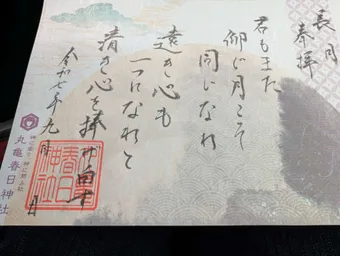 長月
奉拝
君もまた
仰に月こそ
同じなれ
遠き心も
一つになれと
清き心を捧
令和七年九月
日
春日
神社
丸亀春日神社